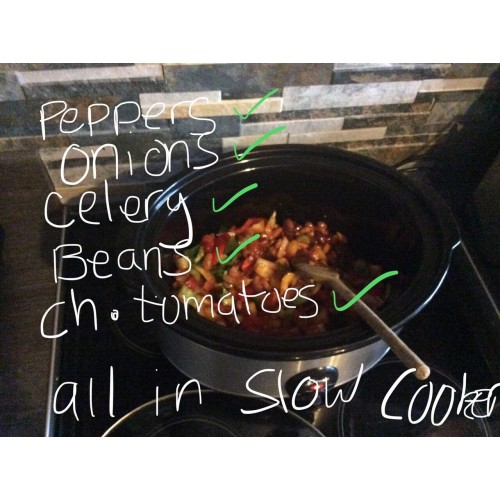 Peppers ✓
onions ✓
Celery ✓
Beans ✓
Ch. tomatoes ✓
all in Slow Cooker